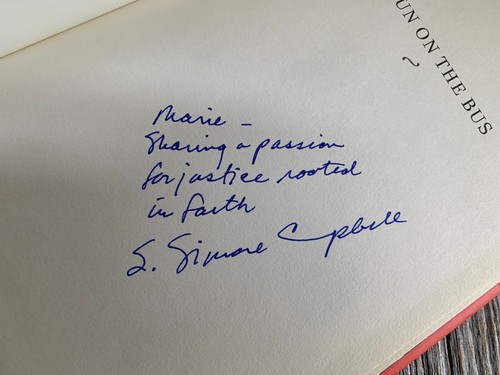 UN ON THE BUS
Marie –
Sharing a passion
for justice rooted
in faith
S. Simone Campbell